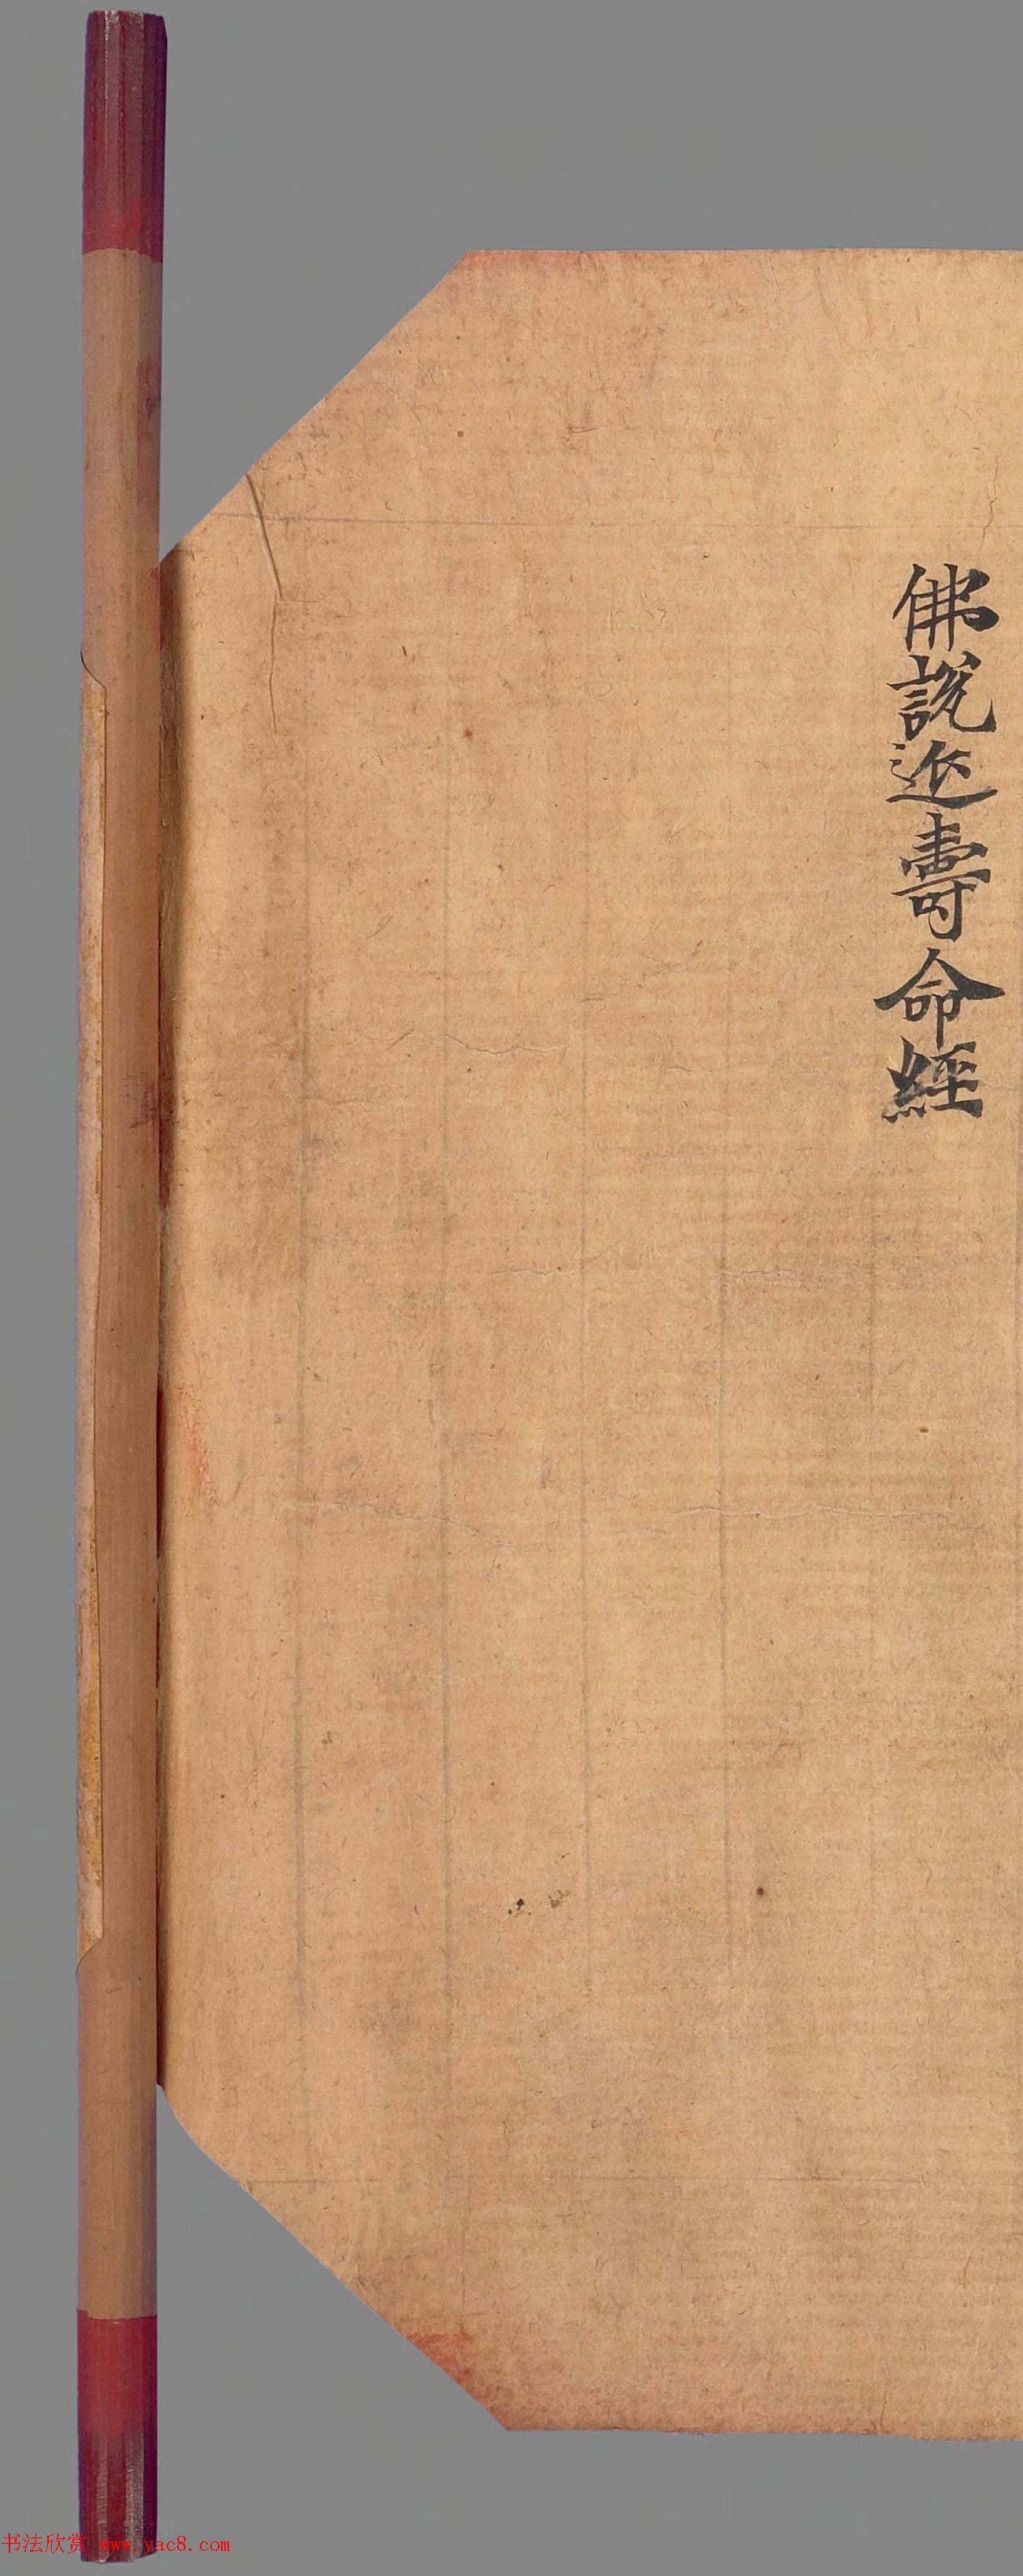 佛說延壽命經
书法欣赏 www.yac8.com